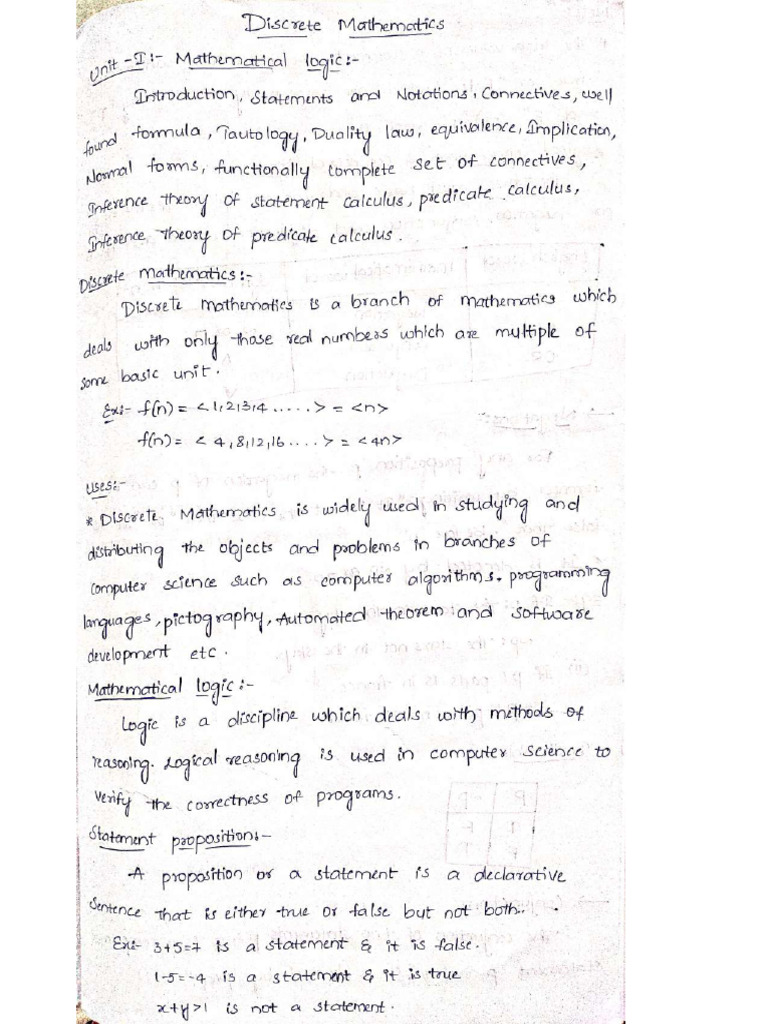 Discrete Mathematics
Unit-I:- Mathematical logic:-
Introduction, Statements and Notations, Connectives, well
found formula, Tautology, Duality law, equivalence, Implication,
Normal forms, functionally complete set of connectives,
Inference theory of statement calculus, predicate calculus,
Inference theory of predicate calculus.
Discrete mathematics:-
Discrete mathematics is a branch of mathematics which
deals with only those real numbers which are multiple of
some basic unit.
Ex:- f(n) = <1,2,3,4 .....> = <n>
f(n) = <4,8,12,16 ....> = <4n>
uses:-
* Discrete Mathematics is widely used in studying and
distributing the objects and problems in branches of
computer science such as computer algorithms, programming
languages, pictography, Automated theorem and software
development etc.
Mathematical logic:-
Logic is a discipline which deals with methods of
reasoning. Logical reasoning is used in computer science to
verify the correctness of programs.
Statement proposition:-
A proposition or a statement is a declarative
sentence that is either true or false but not both.
Ex:- 3+5=7 is a statement & it is false.
1-5=-4 is a statement & it is true
x+y>1 is not a statement.